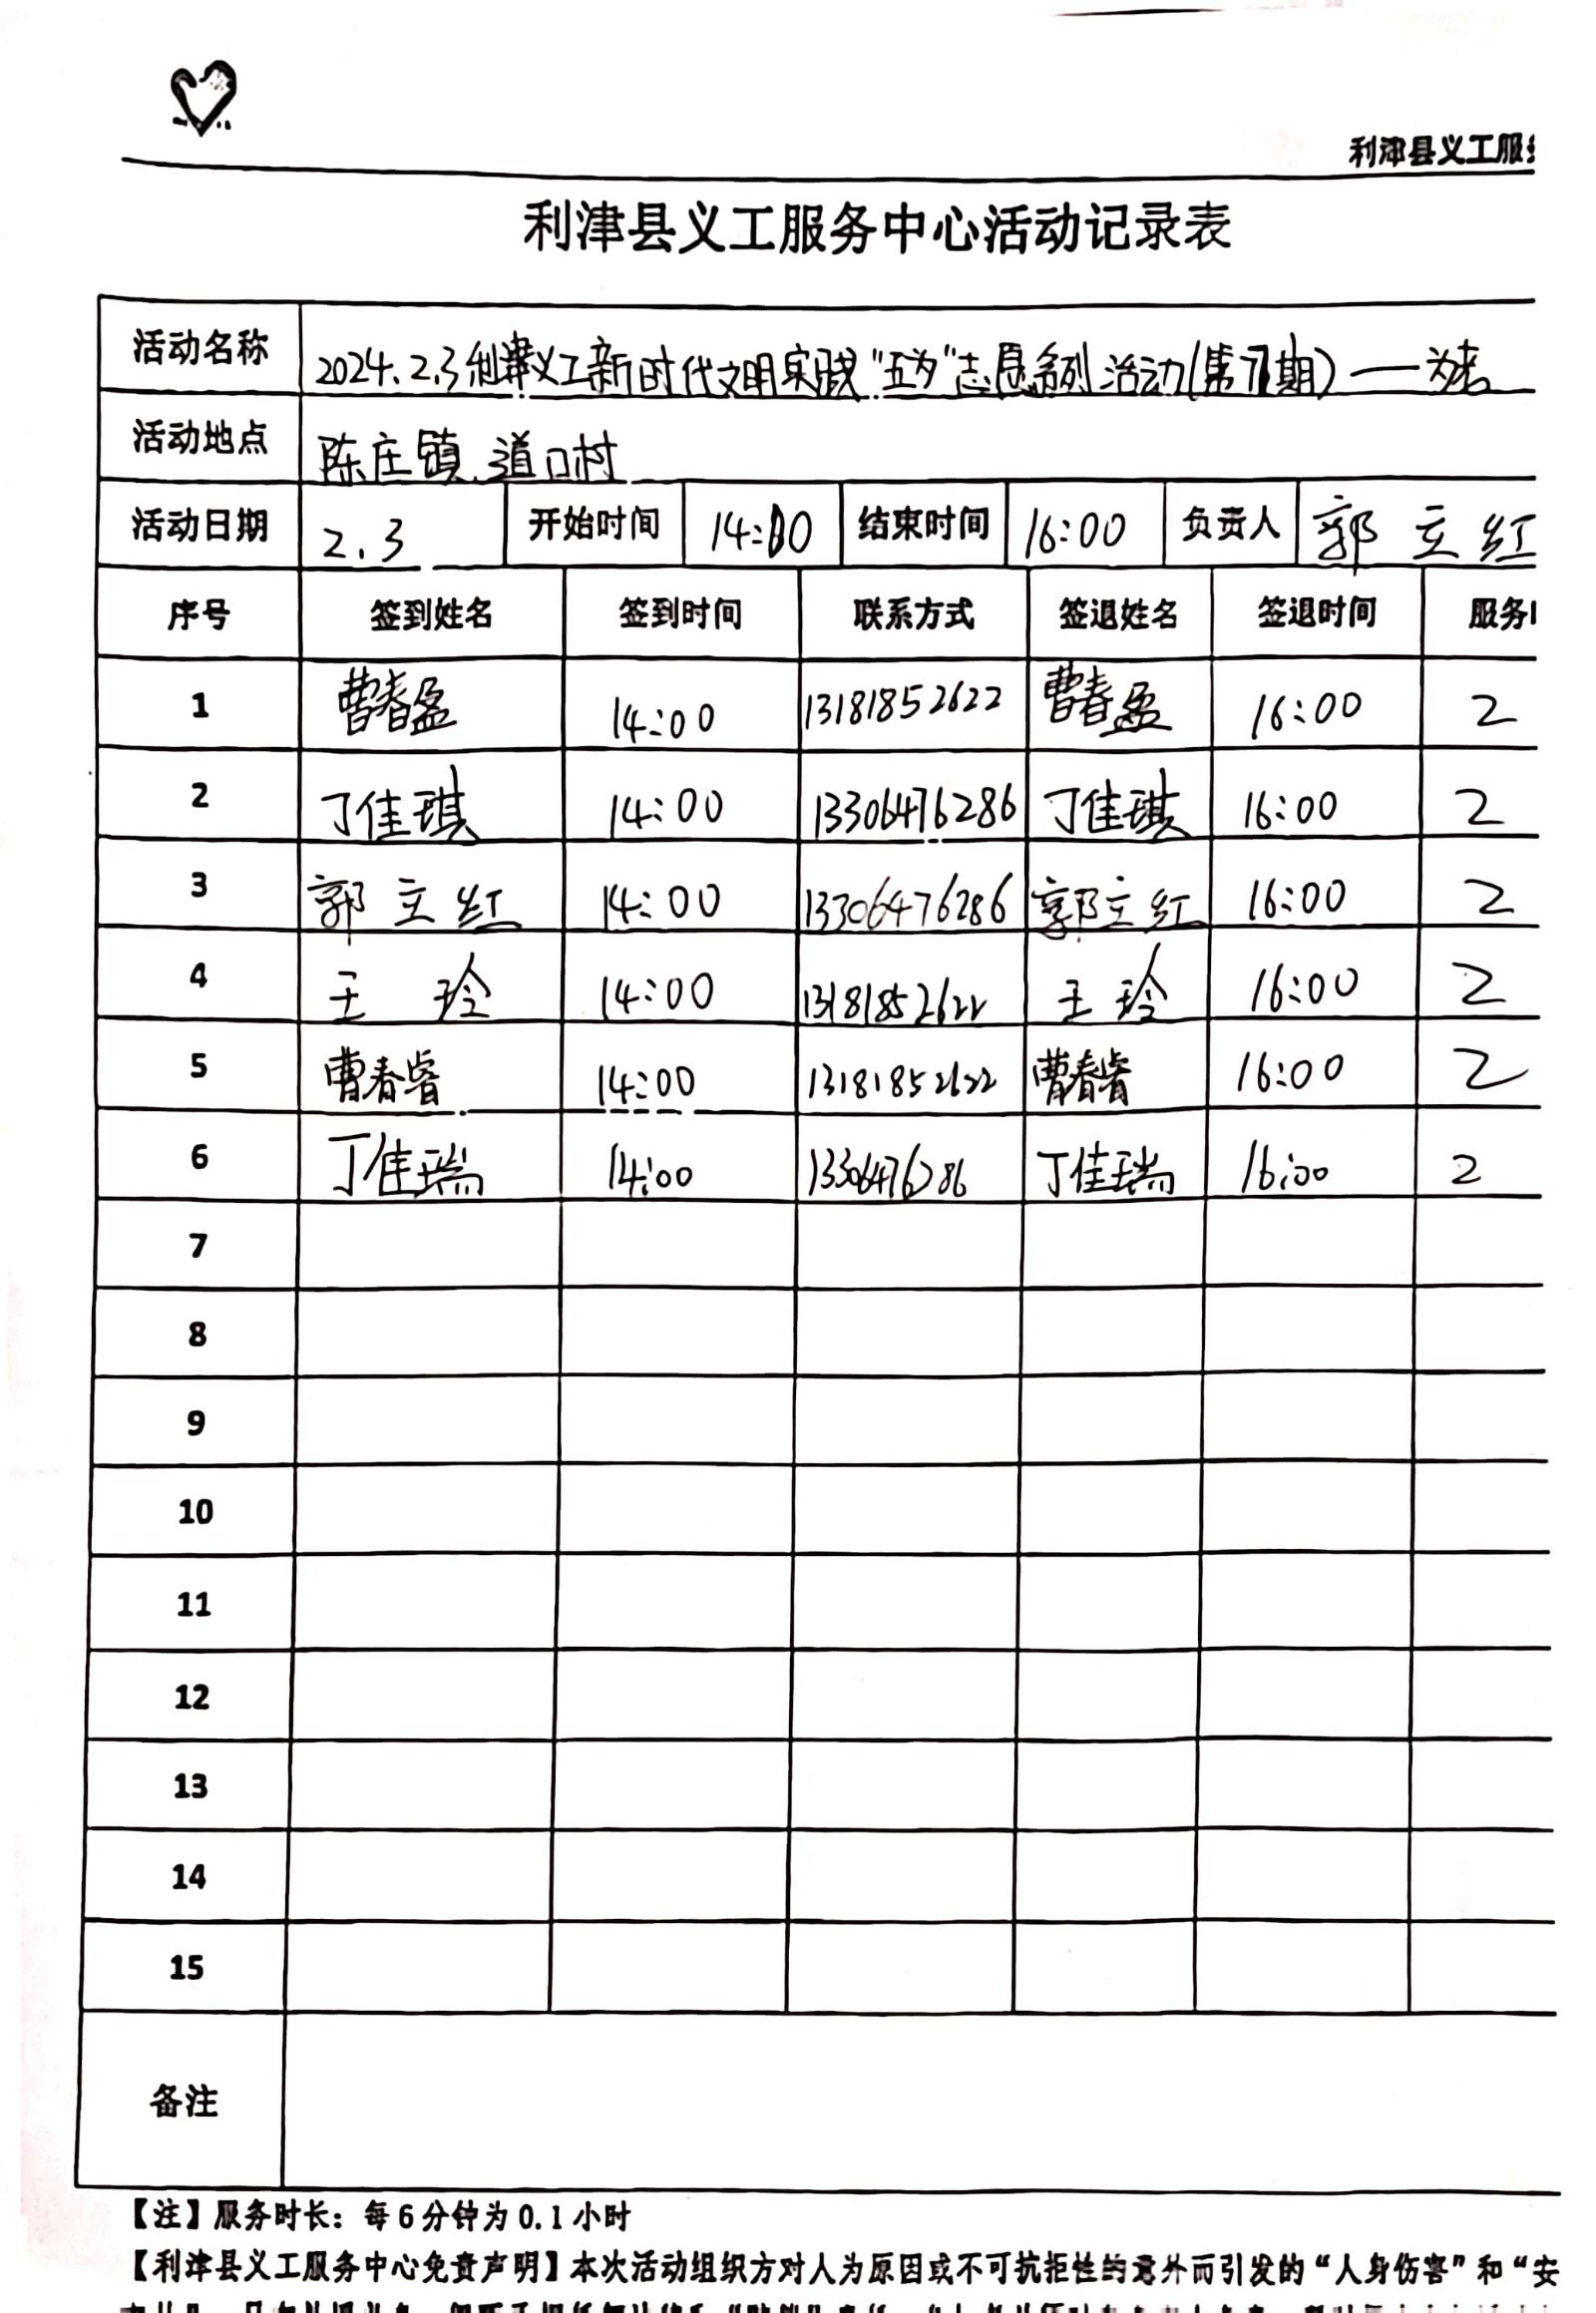 利津县义工服
利津县义工服务中心活动记录表
活动名称 2024.2.3利津义工新时代文明实践“五为”志愿系列活动(第71期)——为老
活动地点 陈庄镇.道口村
活动日期 2.3 开始时间 14:00 结束时间 16:00 负责人 郭立红
序号 签到姓名 签到时间 联系方式 签退姓名 签退时间 服务
1 曹春盈 14:00 13181852622 曹春盈 16:00 2
2 丁佳琪 14:00 13306476286 丁佳琪 16:00 2
3 郭立红 14:00 13306476286 郭立红 16:00 2
4 王玲 14:00 13181852622 王玲 16:00 2
5 曹春睿 14:00 13181852622 曹春睿 16:00 2
6 丁佳瑞 14:00 13306476286 丁佳瑞 16:00 2
7
8
9
10
11
12
13
14
15
备注
【注】服务时长：每6分钟为0.1小时
【利津县义工服务中心免责声明】本次活动组织方对人为原因或不可抗拒性的意外而引发的“人身伤害”和“安